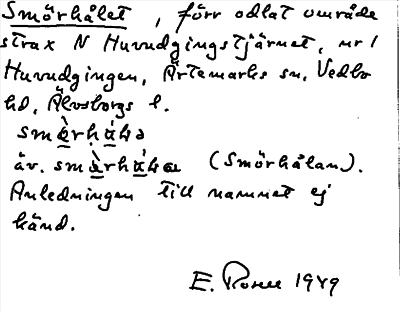 Smörhålet, förr odlat område
strax N Huvudgingstjärnet, nr 1
Huvudgingen, Ärtemarks sn, Vedbo
hd, Älvsborgs l.
äv. (Smörhålan).
Anledningen till namnet ej
känd.
E. 1949